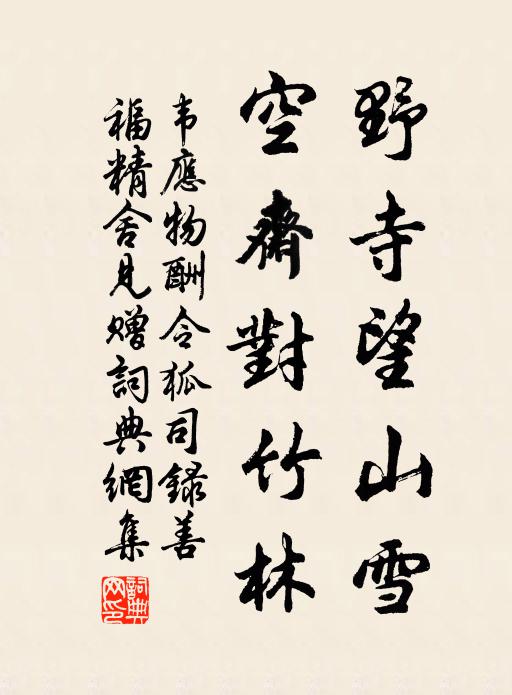 野寺望山雪
空齋對竹林
韦應物酬令狐司録善
福精舍見赠詞典網集
詞典网印